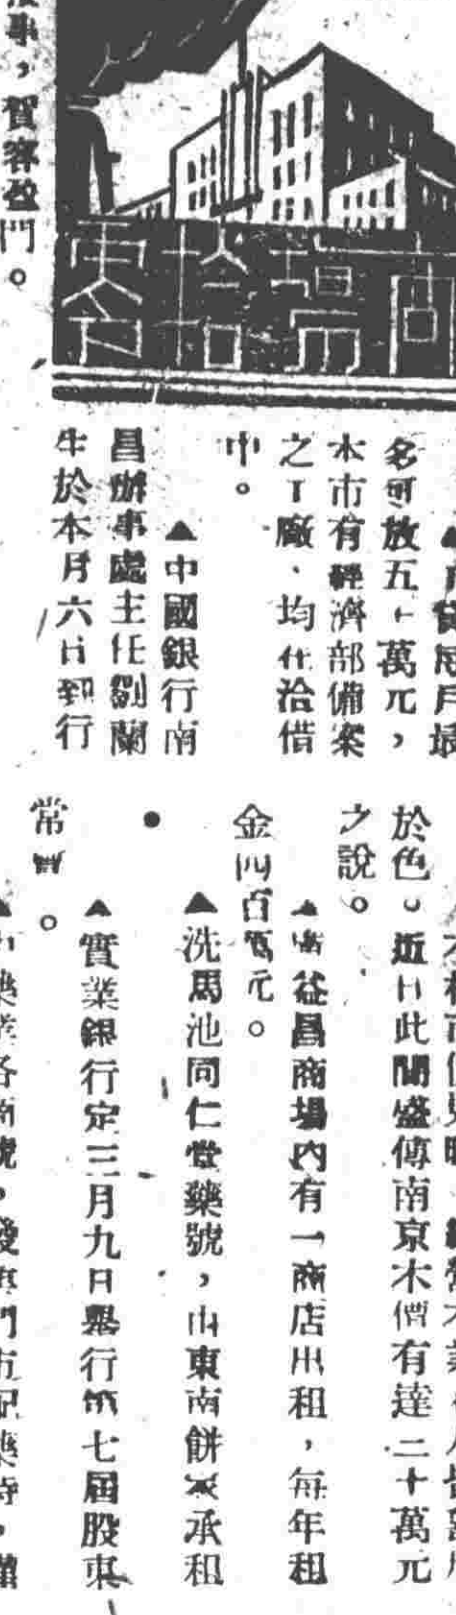 事，賀客盈門。
商場拾零
名可放五十萬元，
本市有經濟部備案
之工廠，均往洽借
中。
▲中國銀行南
昌辦事處主任劉蘭
生於本月六日到行
於色。近日此間盛傳南京木價有達二十萬元
之說。
▲廣益昌商場內有一商店出租，每年租
金四百萬元。
▲洗馬池同仁堂藥號，由東南餅家承租
●
▲實業銀行定三月九日舉行第七屆股東
常會。